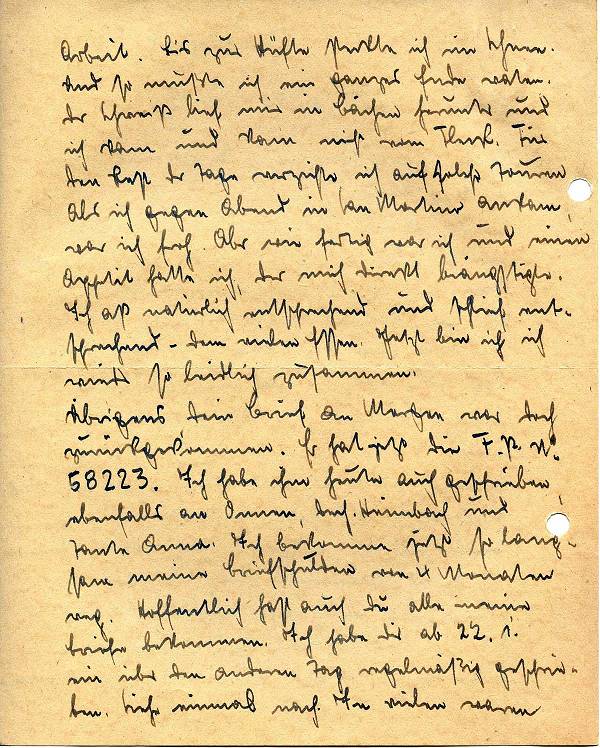 Arbeit. Bis zur Hüfte steckte ich im Schnee.
Und so mußte ich ein ganzes Ende waten.
Der Schweiß lief mir in Bächen herunter und
ich kam und kam nicht vom Fleck. Für
den Rest der Tage verzichte ich auf solche Touren
Als ich gegen Abend in San Martino ankam,
war ich froh. Aber wie fertig war ich und einen
Appetit hatte ich, der mich direkt beängstigte.
Ich aß natürlich entsprechend und schlief ent-
sprechend - dem vielen Essen. Jetzt bin ich ich
wieder so leidlich zusammen.
Übrigens Dein Brief an war doch
zurückgekommen. Er hat jetzt die F.P.N.
58223. Ich habe ihm heute auch geschrieben,
ebenfalls an Heimbach und
Tante Anna. Ich bekomme jetzt so lang-
sam meine Briefschulden von 4 Monaten
weg. Hoffentlich hast auch Du alle meine
Briefe bekommen. Ich habe Dir ab 22. 1.
ein über den anderen Tag regelmäßig geschrie-
ben. Siehe einmal nach. In vielen waren